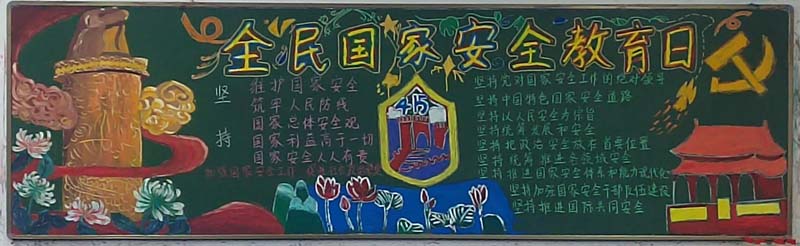 全民国家安全教育日
坚持
维护国家安全
筑牢人民防线
国家总体安全观
国家利益高于一切
国家安全人人有责
加强国家安全工作
415
坚持党对国家安全工作的绝对领导
坚持中国特色国家安全道路
坚持以人民安全为宗旨
坚持统筹发展和安全
坚持把政治安全放在首要位置
坚持统筹推进各领域安全
坚持推进国家安全体系和能力现代化
坚持加强国家安全干部队伍建设
坚持推进国际共同安全